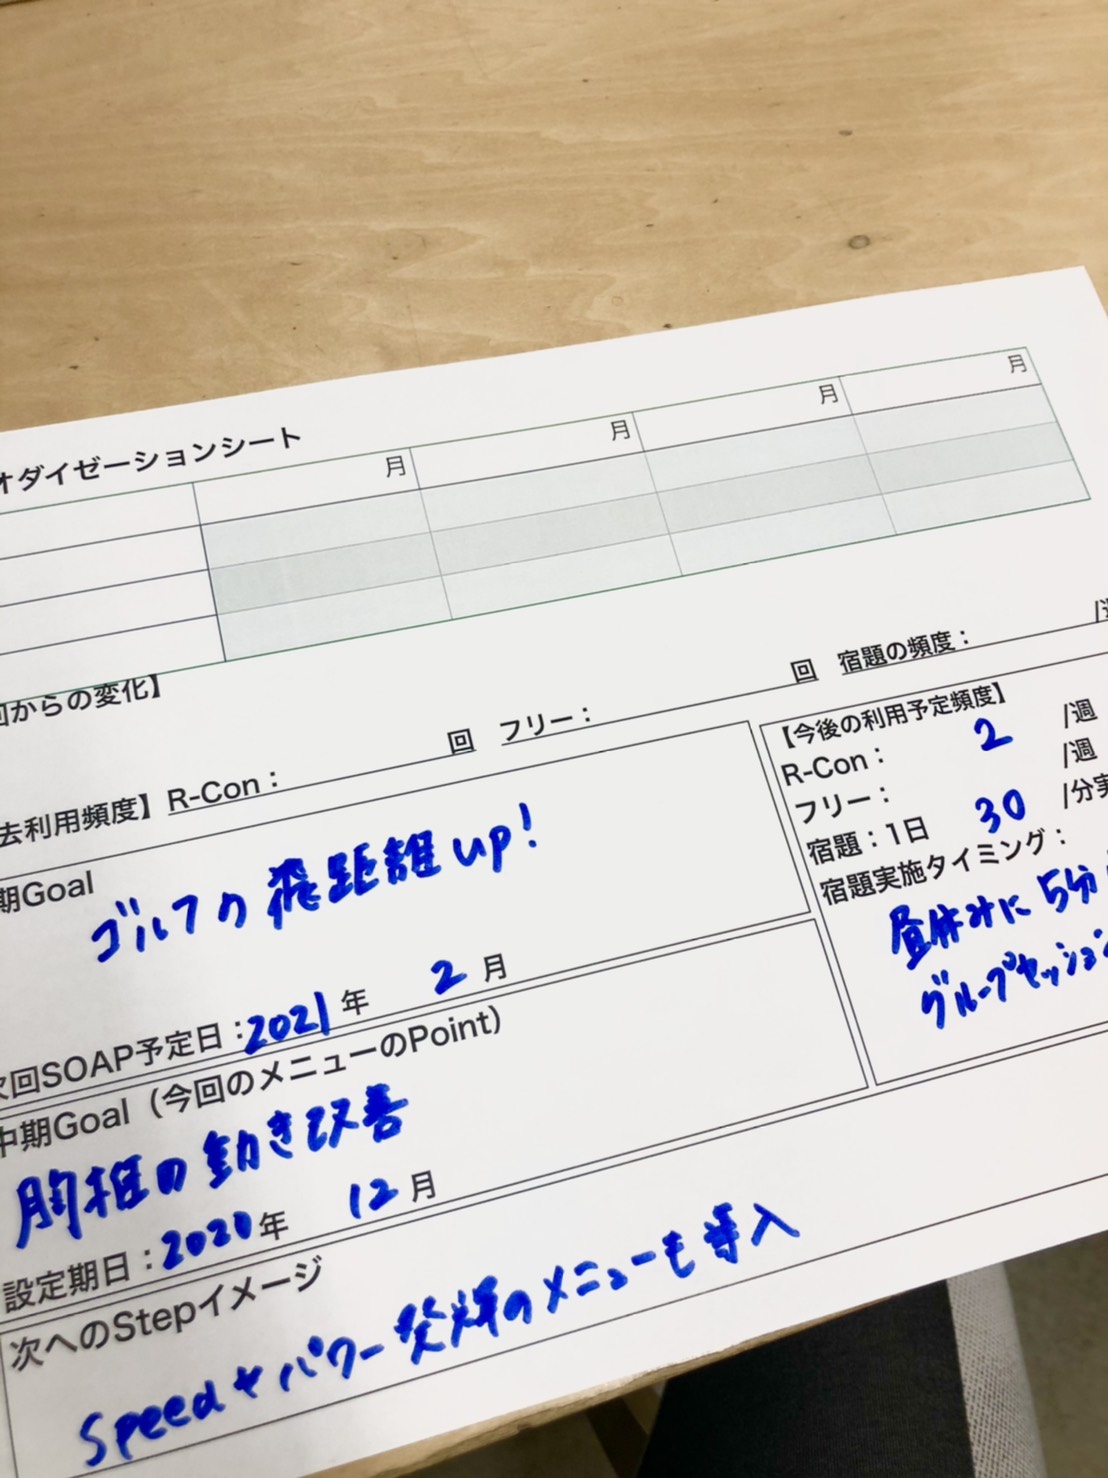 オダイゼーションシート
月 月 月 月
回からの変化】
去利用頻度】R-Con： 回 フリー： 回 宿題の頻度： /週
期Goal
ゴルフの飛距離up!
次回SOAP予定日：2021年 2月
中期Goal（今回のメニューのPoint）
胸椎の動き改善
設定期日：2020年 12月
次へのStepイメージ
Speedやパワー発揮のメニューも導入
【今後の利用予定頻度】
R-Con： 2 /週
フリー： /週
宿題：1日 30 /分実
宿題実施タイミング：
昼休みに5分
グループセッション